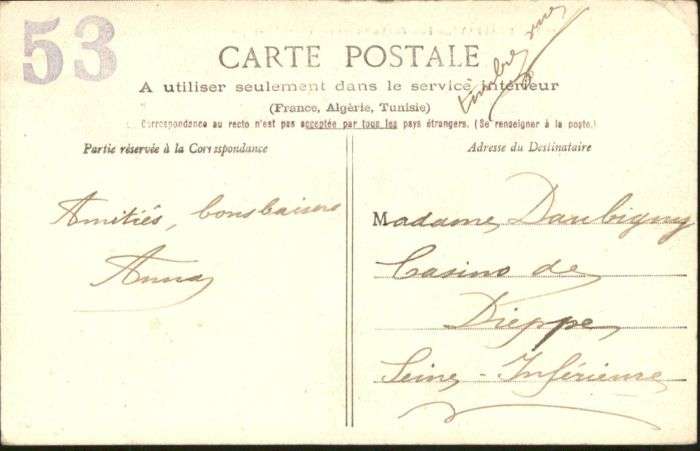 53
CARTE POSTALE
A utiliser seulement dans le service intérieur
(France, Algérie, Tunisie)
Correspondance au recto n'est pas acceptée par tous les pays étrangers. (Se renseigner à la poste.)
Partie réservée à la Correspondance
Adresse du Destinataire
timbre
Amitiés, bons baisers
Anna
Madame Daubigny
Casino de
Dieppe
Seine-Inférieure